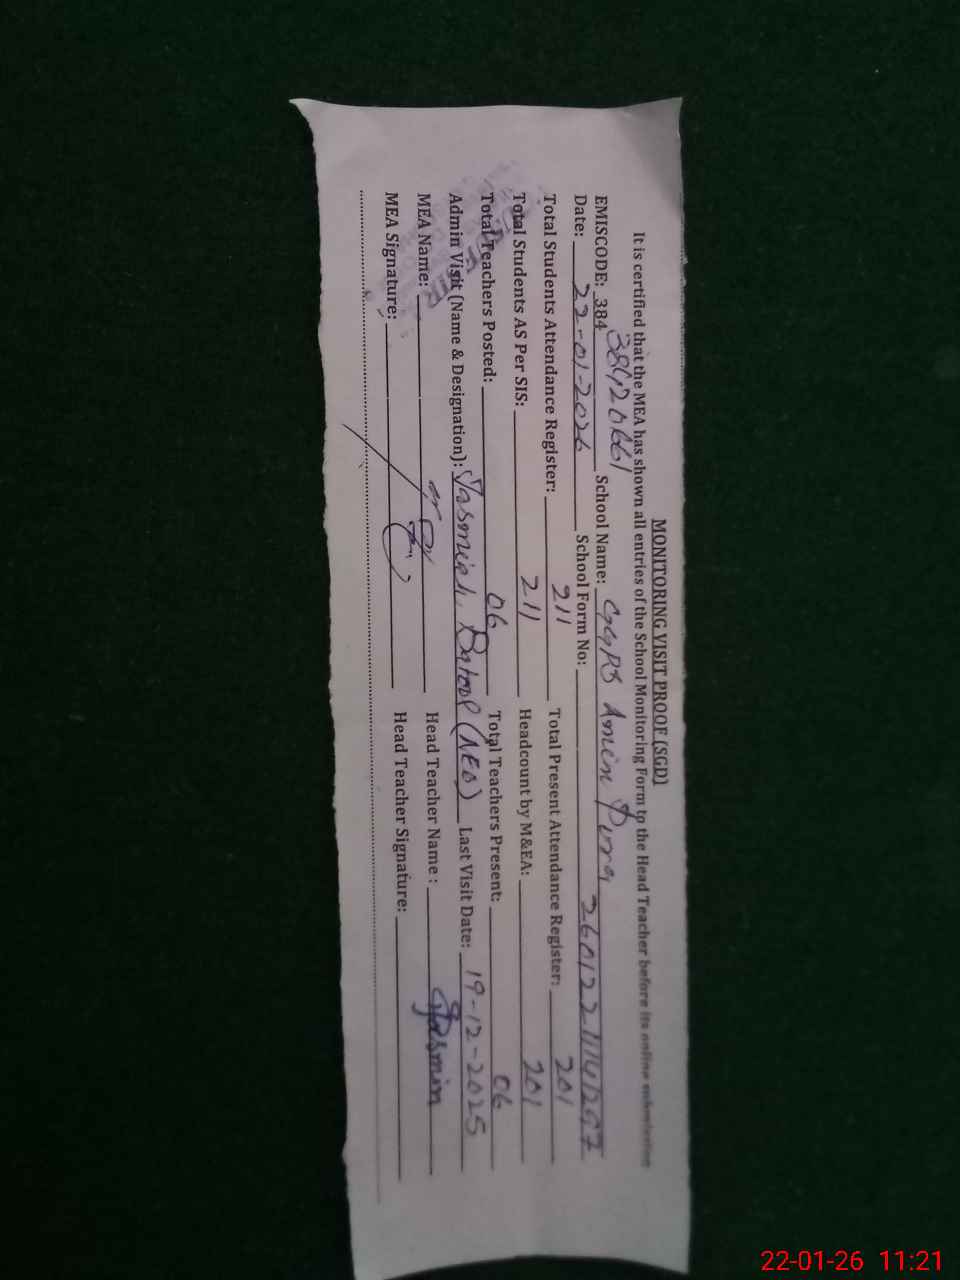 MONITORING VISIT PROOF (SGD)
It is certified that the MEA has shown all entries of the School Monitoring Form to the Head Teacher before its online submission
EMISCODE: 384 38420661 School Name: GGPS Amin Pura
Date: 22-01-2026 School Form No:
Total Students Attendance Register: 211 Total Present Attendance Register: 201
Total Students AS Per SIS: 211 Headcount by M&EA: 201
Total Teachers Posted: 06 Total Teachers Present: 06
Admin Visit (Name & Designation): (AEO) Last Visit Date: 19-12-2025
MEA Name: Head Teacher Name :
MEA Signature: Head Teacher Signature:
22-01-26 11:21